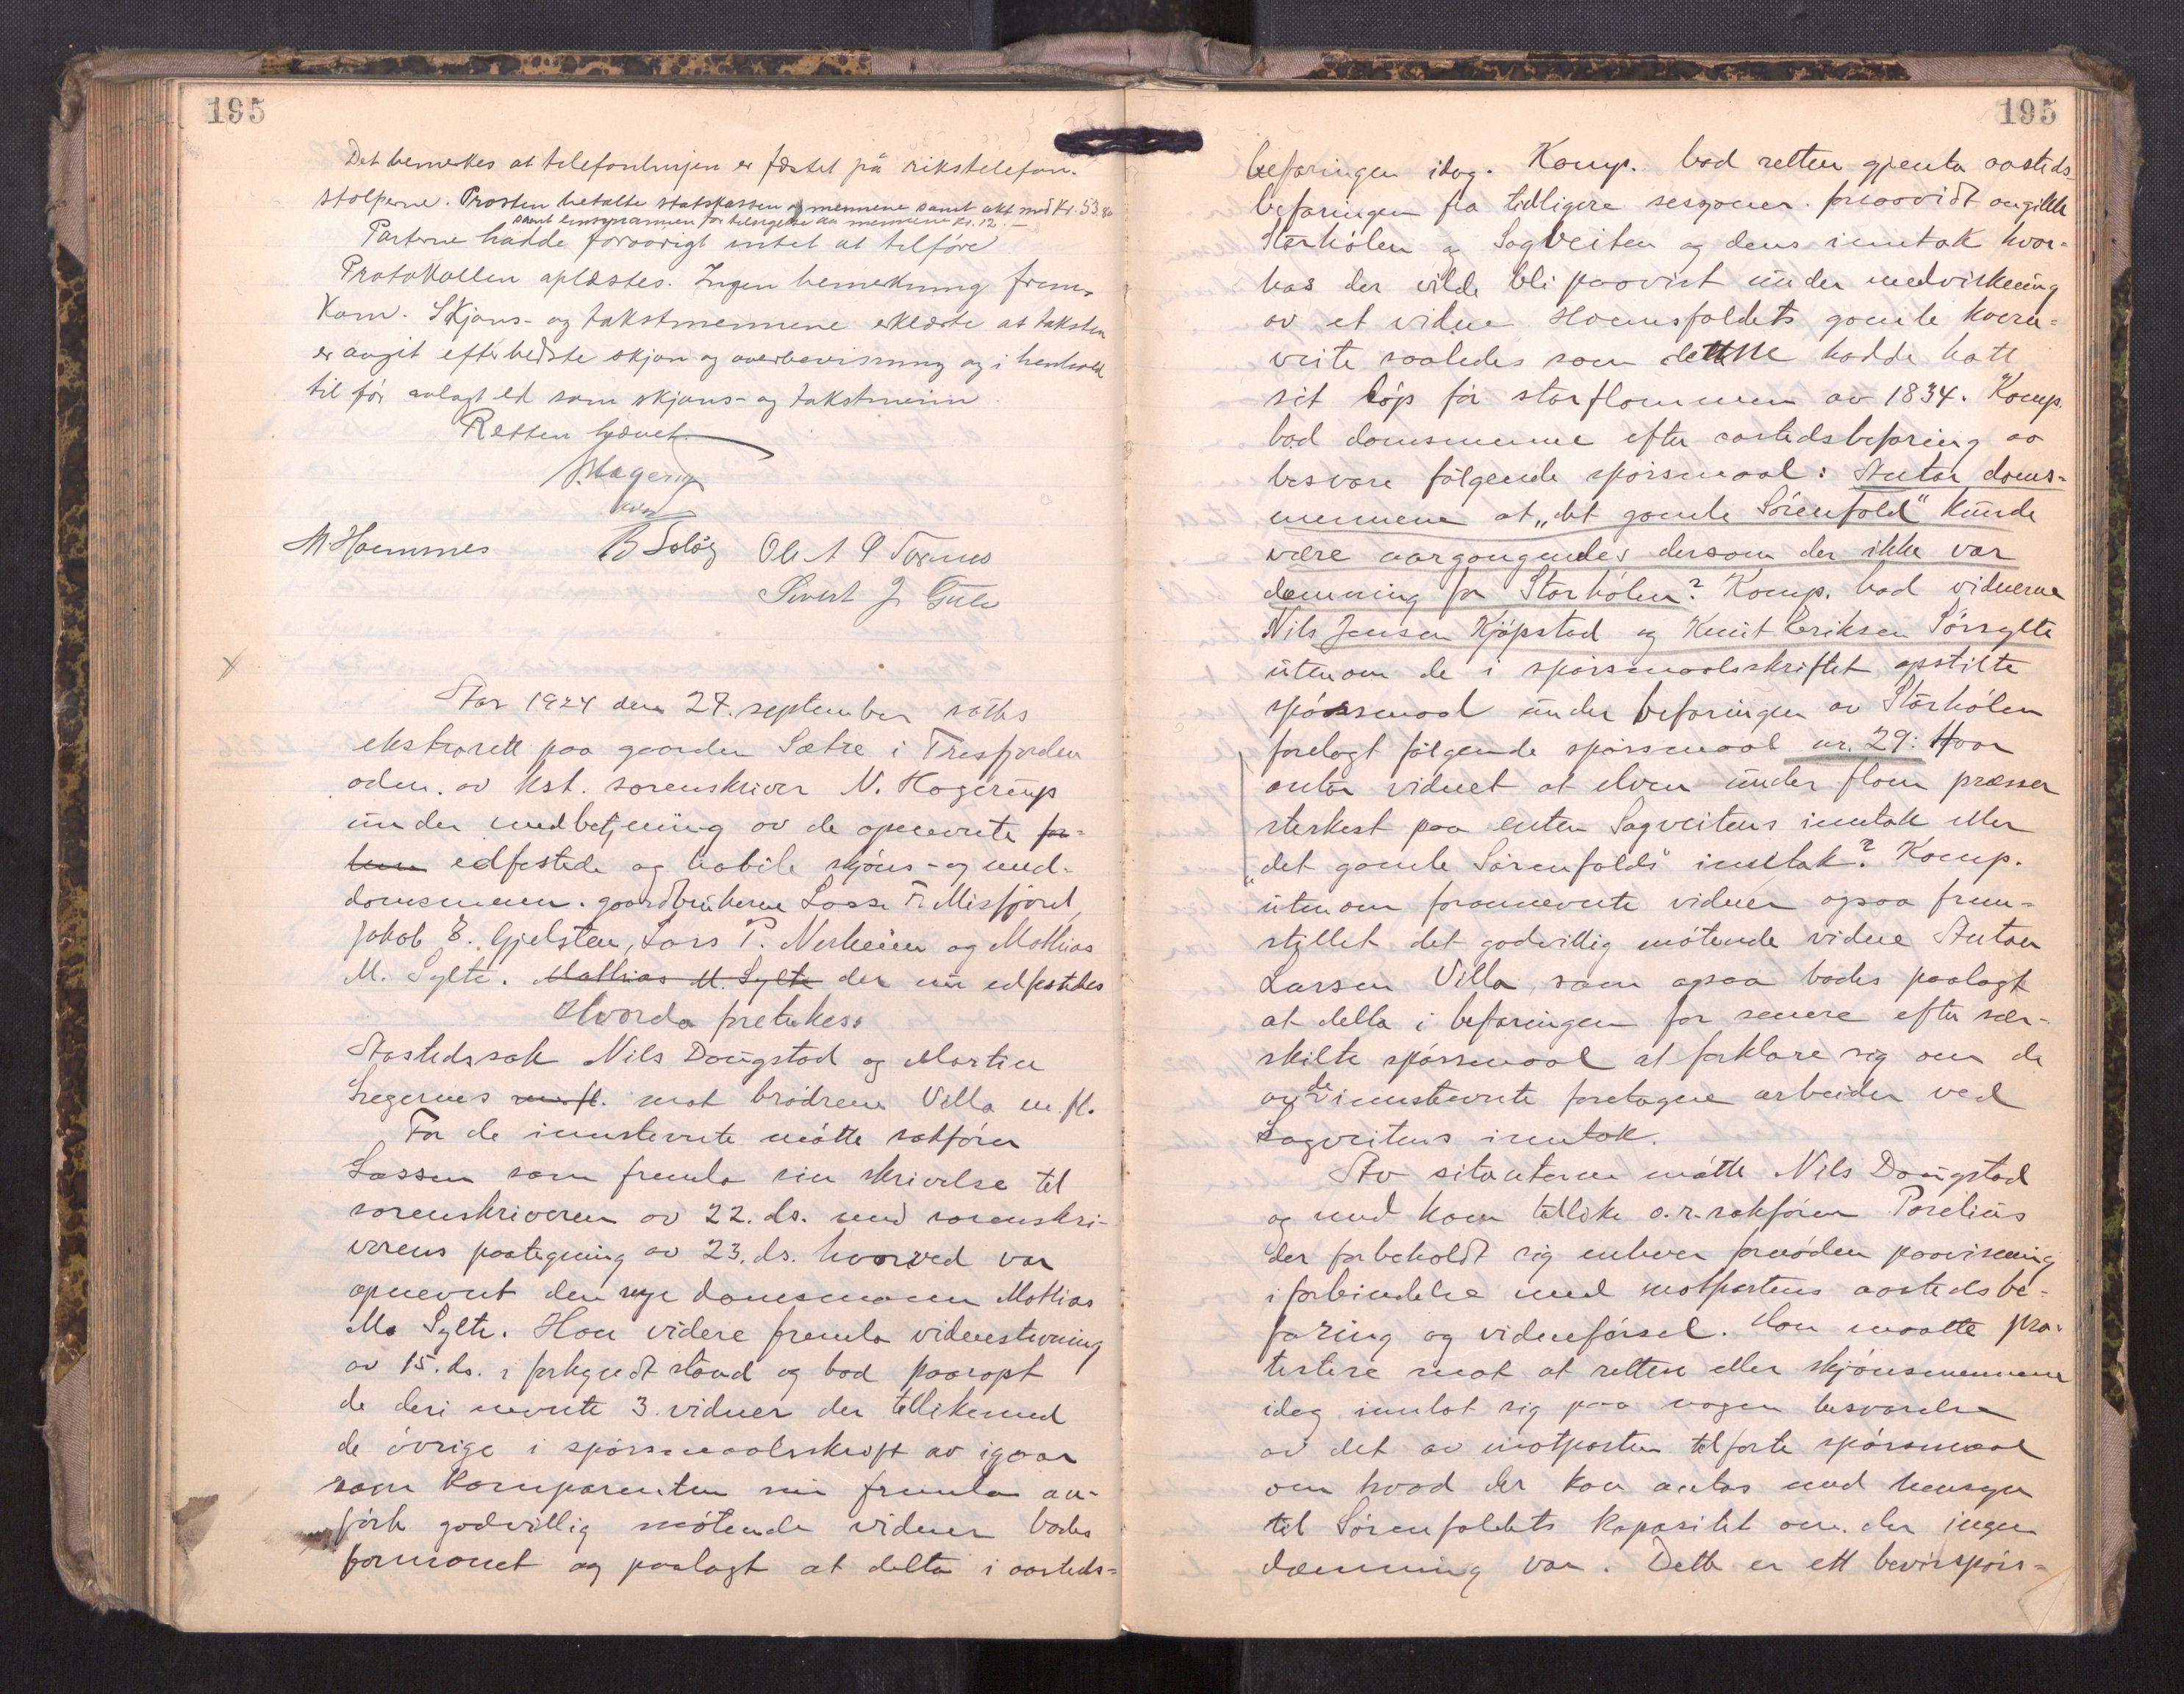 195
Det bemerkes at telefonlinjen er fæstet på rikstelefon-
stolperne. Prosten betalte statskassen og mennene samt akt med Kr. 53.80
samt lensmannen for tilsigelse av mennene kr. 12.–
Parterne hadde forøvrigt intet at tilføre
Protokollen oplæstes. Ingen bemerkning frem-
kom. Skjøns- og takstmennene erklærte at taksten
er avgit efter bedste skjøn og overbevisning og i henhold
til før avlagt ed som skjøns- og takstmenn.
Retten hævet.
N. Hagerup
kst
M. Hammes B Soløy Ole A P Tornes
Sivert J.
x
Aar 1924 den 27. september sattes
ekstraret paa gaarden Sætre i Tresfjorden
adm. av kst. sorenskriver N. Hagerup
under medbetjening av de opnevnte for-
hen edfestede og habile skjøns- og med-
domsmenn. gaardbrukerne Lasse Fr. Misfjord,
Jakob E. Gjelsten, Lars P. Nerheim og Mathias
M. Sylte. Mathias M. Sylte der nu edfestedes
Hvorda foretokes:
Aastedssak Nils Dougstad og Martin
Sregernes m. fl. mot brødrene Villa m. fl.
For de innstevnte møtte sakfører
Lassen som fremla sin skrivelse til
sorenskriveren av 22. ds. med sorenskri-
verens paategning av 23. ds. hvorved var
opnevnt den nye domsmann Mathias
M. Sylte. Han videre fremla vidnestevning
av 15. ds. i forkyndt stand og bad paaropt
de deri nevnte 3 vidner der tillikemed
de øvrige i spørsmaalsskrift av igaar
som komparenten nu fremla an-
førte godvillig møtende vidner bades
formanet og paalagt at delta i aasteds-
195
befaringen idag. Komp. bad retten gjenta aasteds-
befaringen fra tidligere sesjoner forsaavidt angikk
Storhølen og Sagveiten og dens inntak hvor-
hos der vilde bli paavist under medvirkning
av et vidne Hammsfaldets gamle kvern-
veite saaledes som dettne hadde hatt
sit løp før storflommen av 1834. Komp.
bad domsmenne efter aastedsbefaring aa
besvare følgende spørsmaal: Antar doms-
mennene at „det gamle Sørenfald" kunde
være aargangendes dersom der ikke var
demning for Storhølen? Komp. bad vidnerne
Nils Jensen Kjøpstad og Knut Eriksen Sørsylte
utenom de i spørsmaalsskriftet opstilte
spørsmaal under befaringen av Storhølen
forelagt følgende spørsmaal nr. 29: Hvor
antar vidnet at elven under flom presser
sterkest paa enten Sagveitens inntak eller
„det gamle Sørenfalds" inntak? Komp.
utenom forannevnte vidner ogsaa frem-
stillet det godvillig møtende vidne Anton
Larsen Villa, som ogsaa bades paalagt
at delta i befaringen for senere efter sær-
skilte spørsmaal at forklare sig om de
av de innstevnte foretagne arbeider ved
Sagveitens inntak.
Av sitanterne møtte Nils Dougstad
og med ham tillike o.r.sakfører Parelius
der forbeholdt sig enhver fornøden paavisning
i forbindelse med motpartens aastedsbe-
faring og vidneførsel. Han maatte pro-
testere mot at retten eller skjønsmennene
idag innlot sig paa nogen besvarelse
av det av motparten tilførte spørsmaal
om hvad der kan antas med hensyn
til Sørenfaldets kapasitet om der ingen
dæmning var. Dette er ett bevisspørs-